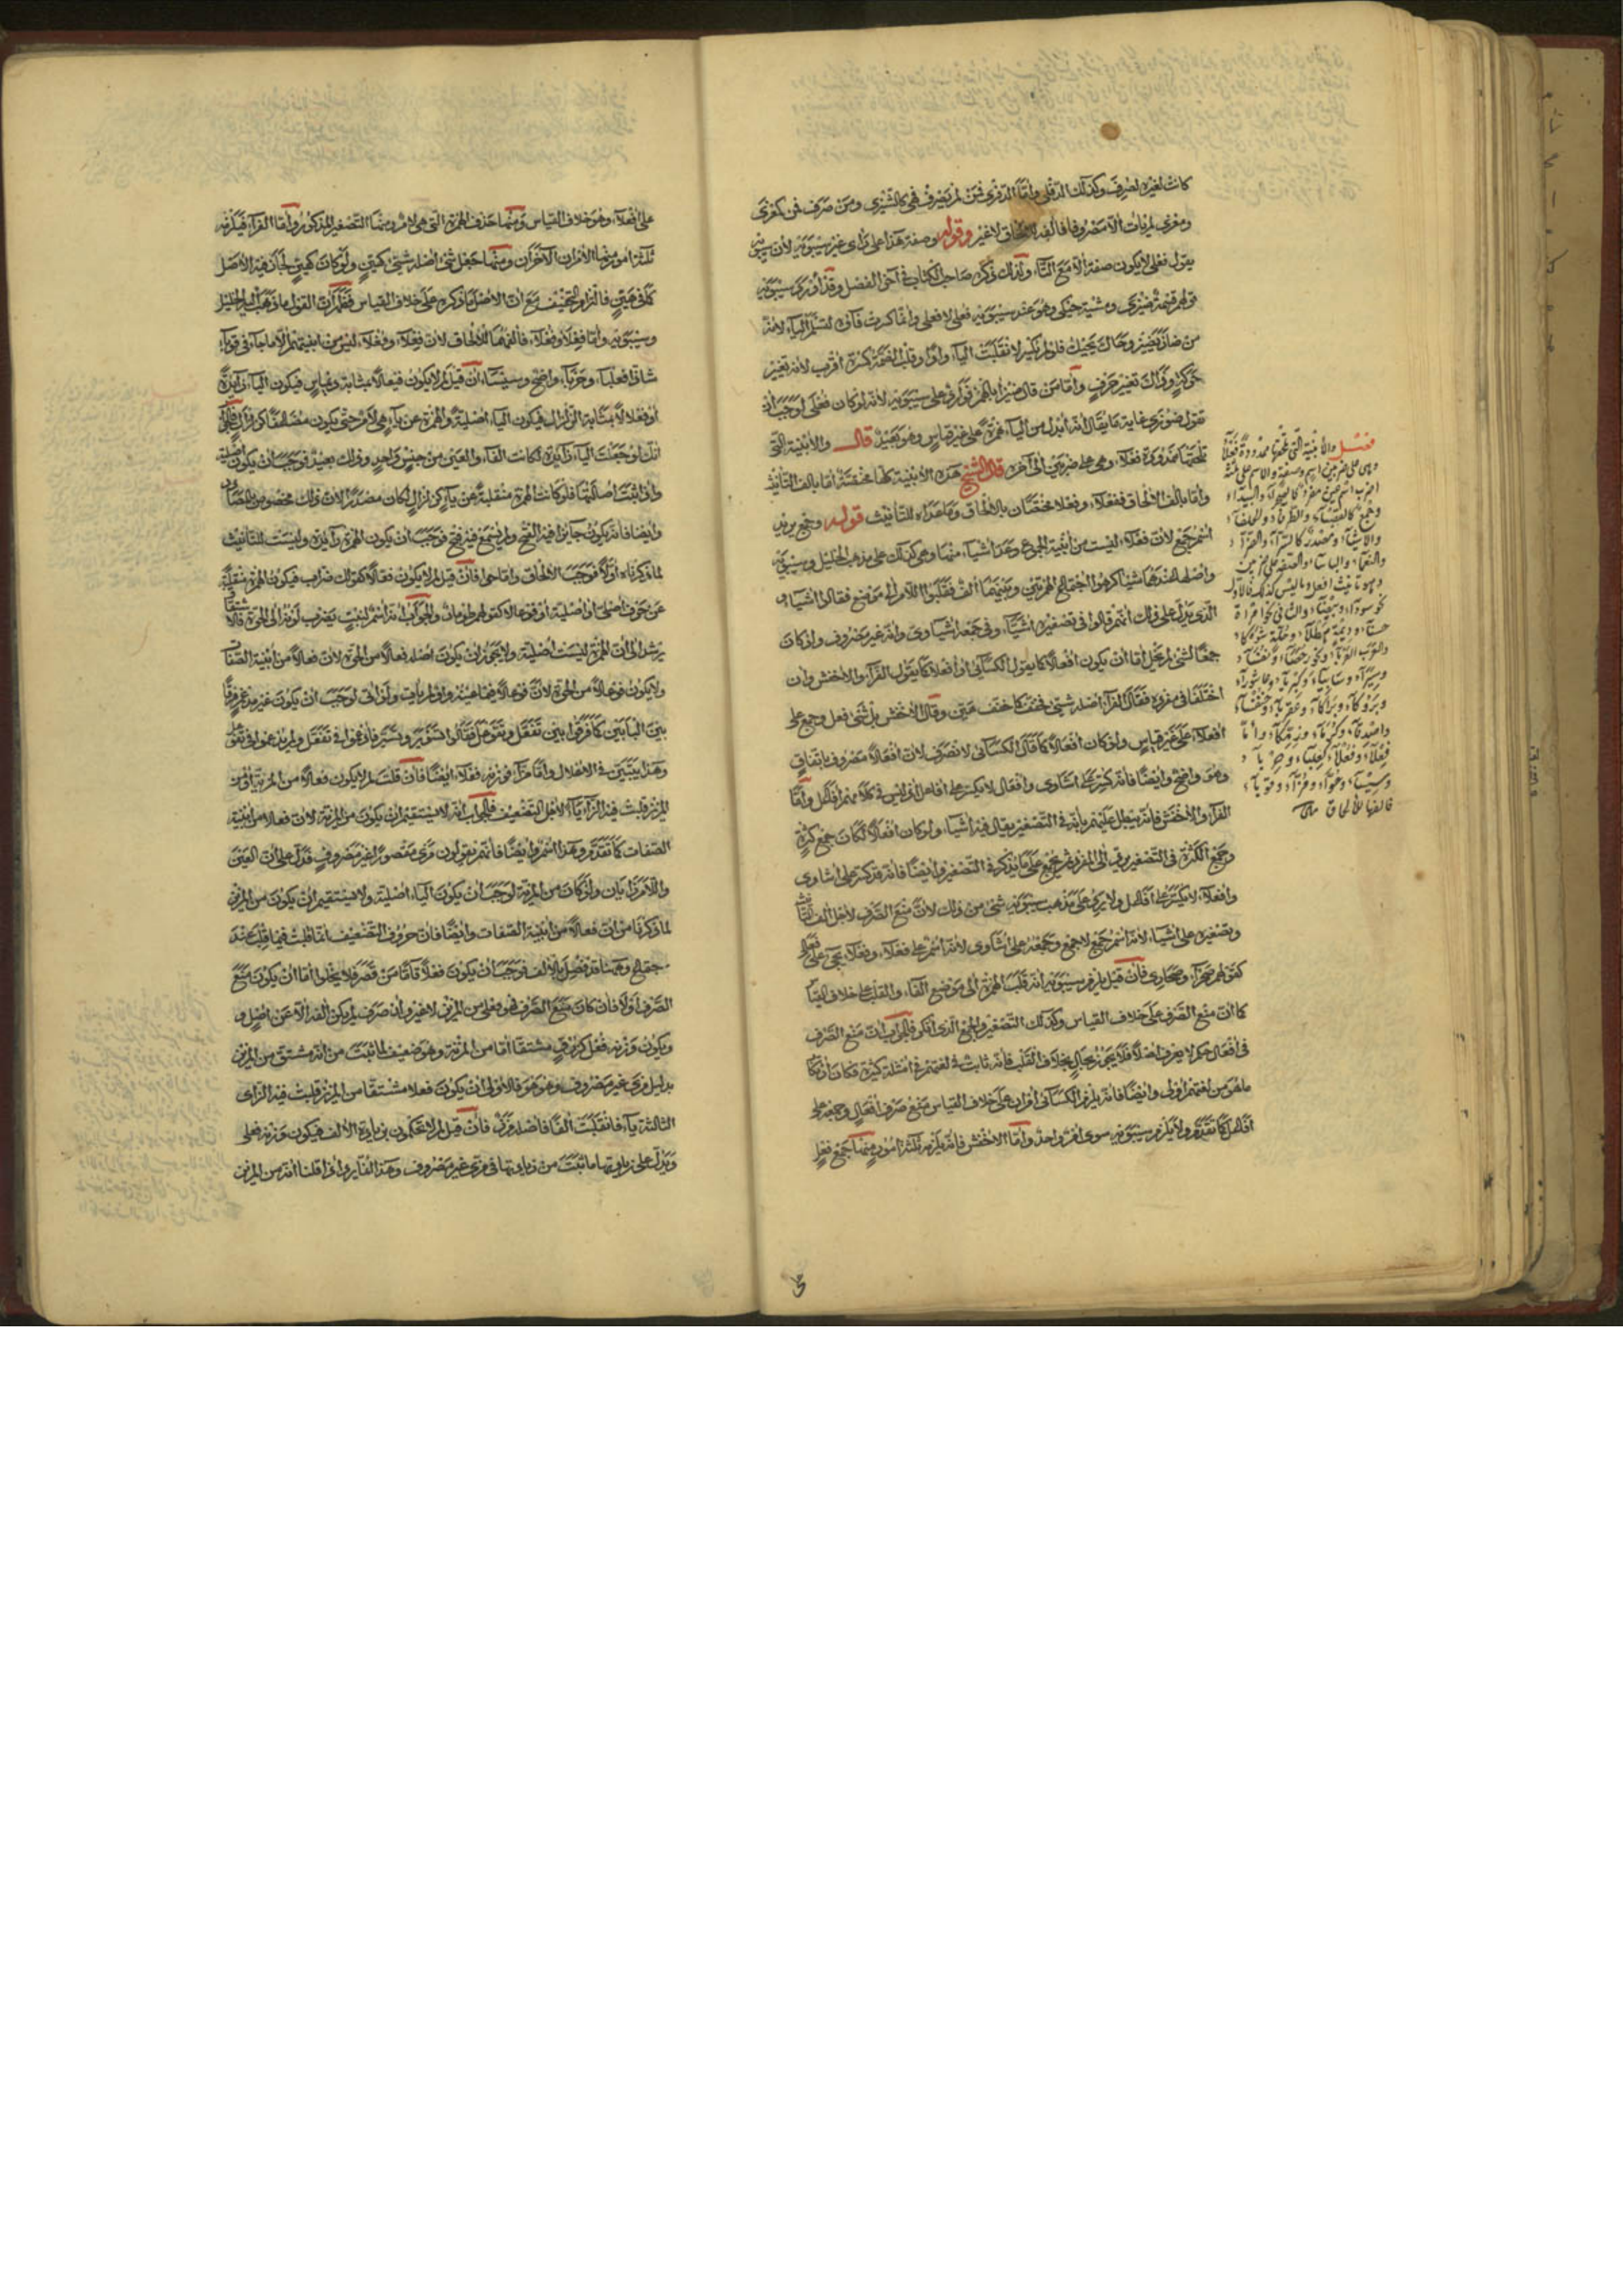 كانت لغيره لصرف وكذلك الدفلى وأما الدفرى فمن لم يصرف فهي كالشيزى ومن صرف فمن كمعزى
ومعزى لم يأت الا مصروفا فألفه للالحاق لا غير وقوله وصفة هذا على رأى غير سيبويه لأن سيبويه
يقول فعلى لا يكون صفة الا مع التاء ولذلك ذكره صاحب الكتاب في آخر الفصل وقد أورد سيبويه
قولهم قسمة ضيزى ومشية حيكى وهو عند سيبويه فعلى لا فعلى وانما كسرت فاؤه لتسلم الياء لأنه
من ضاز يضيز وحاك يحيك فلو لم تكسر لانقلبت الياء واوا وقلب الضمة كسرة أقرب لأنه تغيير
حركة وذاك تغيير حرف وأما من قال ضئزا بالهمز فوارد على سيبويه لأنه لو كان فعلى لوجب أن
تقول ضوزى غاية ما يقال أنه أبدل من الياء همزة على غير قياس وهو بعيد قال والأبنية التي
تلحقها ممدودة فعلاء وهي على ضربين الى آخره قال الشيخ هذه الأبنية كلها مختصة اما بالف التأنيث
وأما بالف الالحاق ففعلاء وفعلاء مختصان بالالحاق وما عداه للتأنيث قوله وجمع يريد
اسم جمع لأن فعلاء ليست من أبنية الجموع وعد أشياء منها وهي كذلك على مذهب الخليل وسيبويه
وأصله عندهما شيئا كرهوا اجتماع الهمزتين وبينهما ألف فقلبوا اللام الى موضع فقالوا أشياء و
الذي يدل على ذلك أنهم قالوا في تصغيره أشياء وفي جمعه أشاوى وانه غير مصروف ولو كان
جمعا لشئ لم يخل اما أن يكون أفعالا كما يقول الكسائي أو أفعلاء كما يقول الفراء والأخفش وان
اختلفا في مفرده فقال الفراء أصله شيئ فخفف كما خفف هين وقال الأخفش بل شئ فعل وجمع على
أفعلاء على غير قياس ولو كان أفعالا كما قال الكسائي لانصرف لأن أفعالا مصروف باتفاق
وهو واضح وأيضا فانه كسر على أشاوى وأفعال لا يكسر على أفاعل اذ ليس في كلامهم أفاعل وأما
الفراء والأخفش فانه يبطل عليهم بأنه في التصغير يقال فيه أشياء ولو كان أفعلاء لكان جمع كثرة
وجمع الكثرة في التصغير يرد الى المفرد ثم يجمع على ما يذكر في التصغير وأيضا فانه قد كسر على أشاوى
وأفعلاء لا يكسر على أفاعل ولا يرد على مذهب سيبويه شئ من ذلك لأن منع الصرف لأجل ألف التأنيث
وتصغيره على أشياء لأنه اسم جمع لا جمع وجمعه على أشاوى لأنه اسم على فعلاء وفعلاء يجئ على فعالى
كقولهم صحراء وصحارى فان قيل يلزم سيبويه أنه قلب الهمزة الى موضع الفاء والقلب على خلاف القياس
كما أن منع الصرف على خلاف القياس وكذلك التصغير والجمع الذي أنكر فالجواب أن منع الصرف
في أفعال حكم لا يعرف أصلا فلا يجوز بحال بخلاف القلب فانه ثابت في لغتهم في أمثلة كثيرة فكان ارتكاب
ما هو من لغتهم أولى وأيضا فانه يلزم الكسائي أمران على خلاف القياس منع صرف أفعال وجمعه على
أفاعل كما تقدم ولا يلزم سيبويه سوى أمر واحد وأما الأخفش فانه يلزمه ثلثة أمور منها جمع فعل
فصل والأبنية التي تلحقها ممدودة فعلاء
وهي على ضربين اسم وصفة والاسم على ثلثة
أضرب اسم عين مفرد كالصحراء والبيداء
وجمع كالقصباء والطرفاء والحلفاء
والأشياء ومصدر كالسراء والضراء
والنعماء والبأساء والصفة على ضربين
وهو تأنيث أفعل وما ليس كذلك فالأول
نحو سوداء وبيضاء والثاني نحو امرأة
حسناء وديمة هطلاء وحلة شوكاء
والعرب العرباء ونحو رحضاء ونفساء
وسيراء وسابياء وكبرياء وعاشوراء
وبروكاء وبراكاء وعقرباء وخنفساء
وأصدقاء وكرماء وزمكاء وأما
فعلاء وفعلاء كعلباء وحرباء
وسيساء وحواء ومزاء وقوباء
فالفها للالحاق
على أفعلاء وهو خلاف القياس ومنها حذف الهمزة التي هي لام ومنها التصغير المذكور وأما الفراء فيلزمه
ثلثة أمور منها الأمران الآخران ومنها جعل شئ أصله شيئ كهين ولو كان كهين لجاء فيه الأصل
كما في هين فالتزام التخفيف مع أن الأصل ما ذكره على خلاف القياس فظهر أن القول ما ذهب اليه الخليل
وسيبويه وأما فعلاء وفعلاء فألفهما للالحاق لأن فعلاء وفعلاء ليس من أبنيتهم الا ما جاء في قوباء
شاذا فعلباء وحرباء واضح وسيساء فان قيل لم لا يكون فيعالا بمثابة ديماس فيكون الياء زائدة
أو فعلالا بمثابة الزلزال فيكون الياء أصلية والهمزة عن ياء هي لام حتى يكون مضاعفا كزلزال فالجواب
انك لو جعلت الياء زائدة لكانت الفاء والعين من جنس واحد وذلك بعيد فوجب أن يكون أصلية
واذا ثبت أصالتها فلو كانت الهمزة منقلبة عن ياء كزلزال لكان مصدرا لأن ذلك مخصوص بالمصادر
وأيضا فانه يكون جائزا فيه الفتح ولم يسمع فيه فتح فوجب أن يكون الهمزة زائدة وليست للتأنيث
لما ذكرناه أولا فوجب الالحاق وأما حواء فان قيل لم لا يكون فعالا كقولك ضراب فيكون الهمزة منقلبة
عن حرف أصلى أو أصلية أو فوعالا كقولهم طومار فالجواب أنه اسم لنبت يضرب لونه الى الحوة فالاشتقاق
يرشد الى أن الهمزة ليست أصلية ولا يجوز أن يكون أصله فعالا من الحوة لأن فعالا من أبنية الصفات
ولا يكون فوعالا من الحوة لأن فوعالا فيما عينه واو لم يأت ولو أتى لوجب أن يكون غير مدغم فرقا
بين البابين كما فرقوا بين تفعل وتفوعل فقالوا تسير وتسوير فأدغموا في تفعل ولم يدغموا في تفوعل
وهذا يتبين في الاعلال وأما مزاء فوزنه فعلاء أيضا فان قلت لم لا يكون فعالا من المزية أو من
المز قلبت فيه الزاء ياء لأجل التضعيف فالجواب أنه لا يستقيم أن يكون من المزية لأن فعالا من أبنية
الصفات كما تقدم وهذا اسم وأيضا فانهم يقولون مزى مقصورا غير مصروف فدل على أن العين
واللام زايان ولو كان من المزية لوجب أن يكون الياء أصلية ولا يستقيم أن يكون من المز
لما ذكرنا من أن فعالا من أبنية الصفات وأيضا فان حروف التضعيف انما قلبت فيما قلت عند
اجتماع وههنا قد فصل بالألف فوجب أن يكون فعلاء فأما من قصر فلا يخلو اما أن يكون منع
الصرف أولا فان كان منع الصرف فهو فعلى من المز لا غير وان صرف لم يكن ألفه الا عن أصل و
ويكون وزنه فعل كزرق مشتقا اما من المزية وهو ضعيف لما ثبت من أنه مشتق من المز
بدليل مزى غير مصروف وهو هو فالأولى أن يكون فعلا مشتقا من المز قلبت فيه الزاى
الثالثة ياء فانقلبت ألفا فأصله مزز فان قيل لم لا تحكمون بزيادة الألف فيكون وزنه فعلى
ويدل على زيادتها ما ثبت من زيادتها في مزى غير مصروف وهذا الفارى اذا قلنا أنه من المز